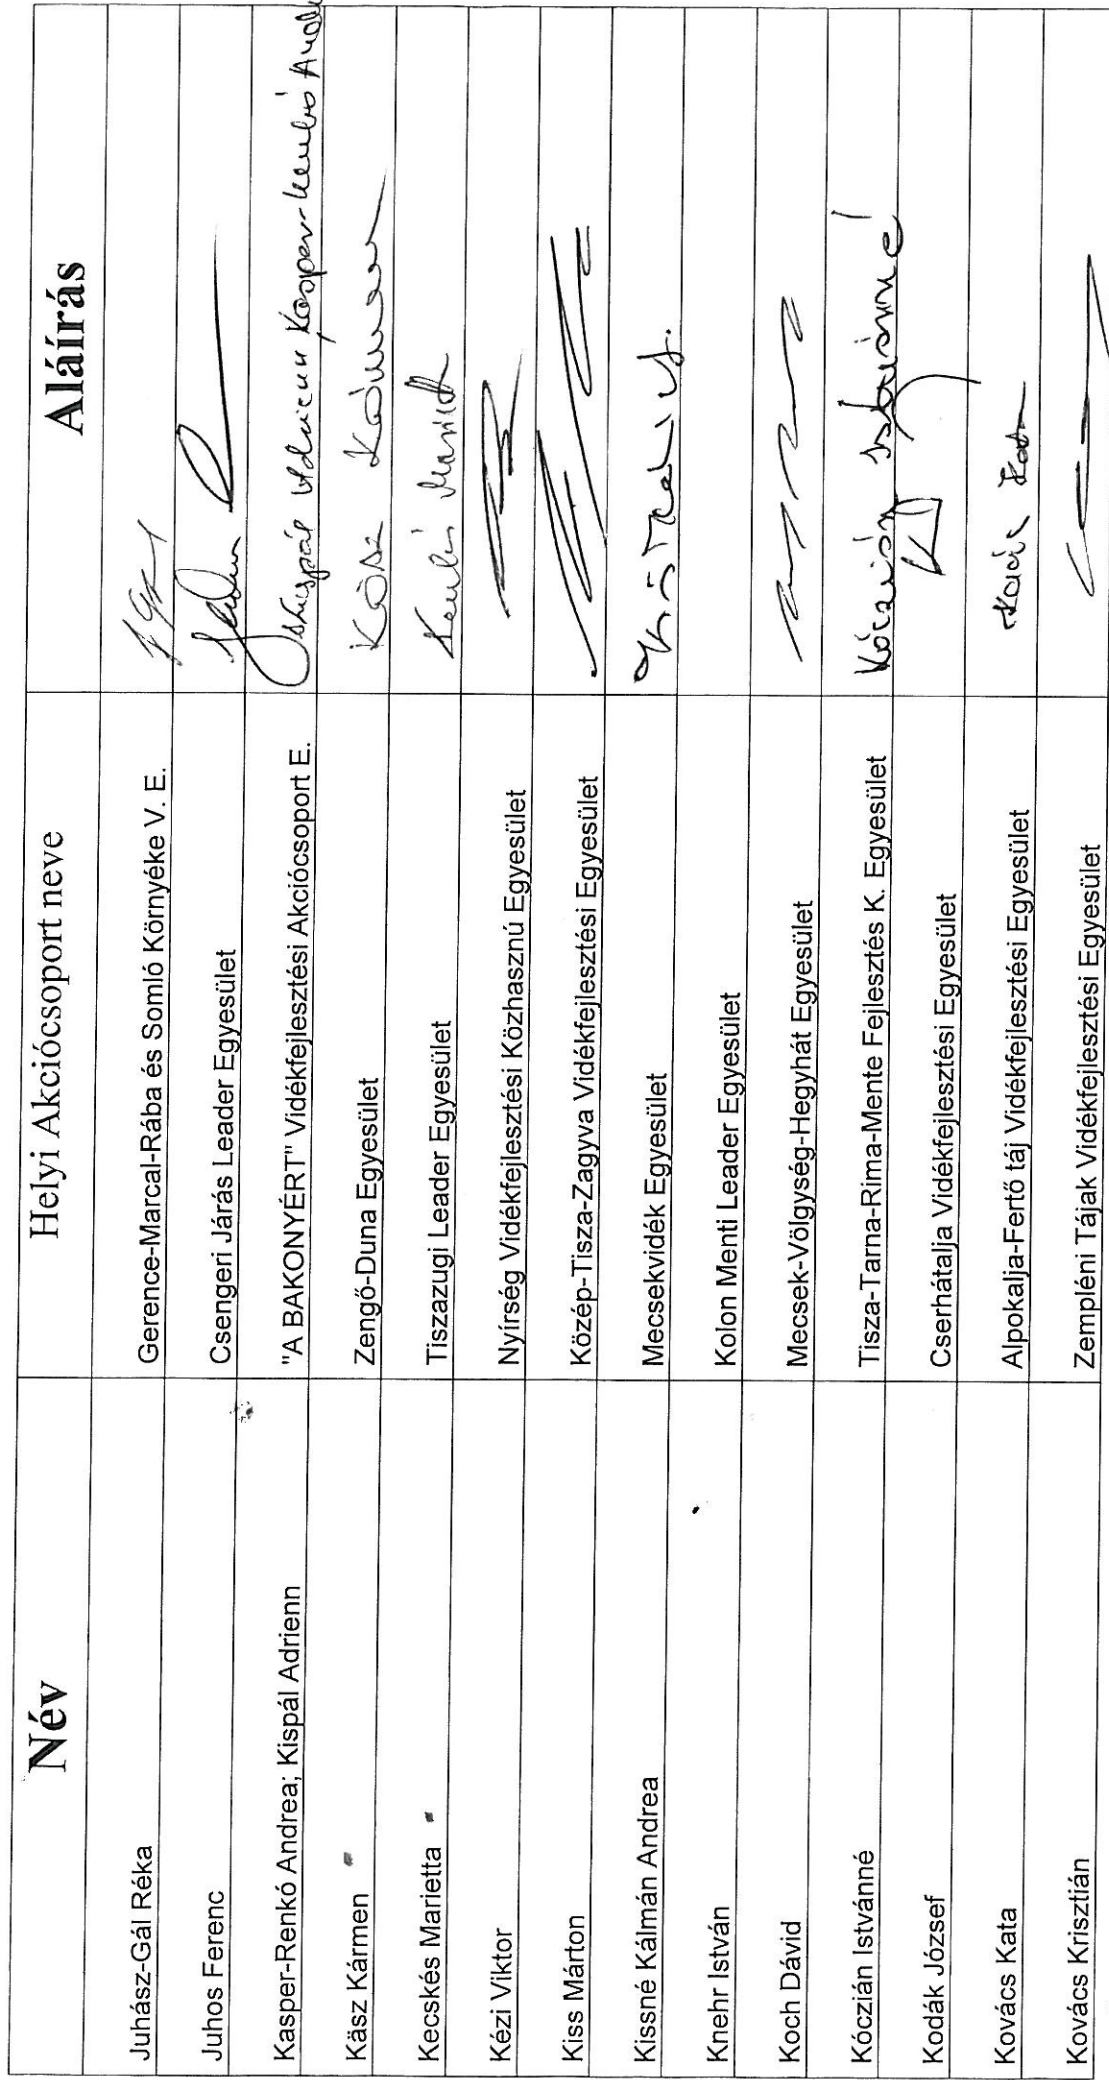 Név Helyi Akciócsoport neve Aláírás
Juhász-Gál Réka Gerence-Marcal-Rába és Somló Környéke V. E.
Juhos Ferenc Csengeri Járás Leader Egyesület
Kasper-Renkó Andrea; Kispál Adrienn "A BAKONYÉRT" Vidékfejlesztési Akciócsoport E.
Käsz Kármen Zengő-Duna Egyesület
Kecskés Marietta Tiszazugi Leader Egyesület
Kézi Viktor Nyírség Vidékfejlesztési Közhasznú Egyesület
Kiss Márton Közép-Tisza-Zagyva Vidékfejlesztési Egyesület
Kissné Kálmán Andrea Mecsekvidék Egyesület
Knehr István Kolon Menti Leader Egyesület
Koch Dávid Mecsek-Völgység-Hegyhát Egyesület
Kóczián Istvánné Tisza-Tarna-Rima-Mente Fejlesztés K. Egyesület Kóczián Istvánné
Kodák József Cserhátalja Vidékfejlesztési Egyesület
Kovács Kata Alpokalja-Fertő táj Vidékfejlesztési Egyesület Kovács Kata
Kovács Krisztián Zempléni Tájak Vidékfejlesztési Egyesület